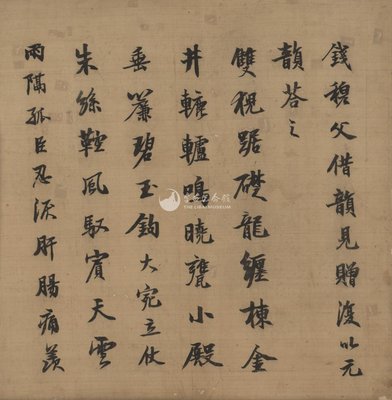 錢穆父借韻見贈復以元
韻荅之
雙猊踞礎龍纏棟金
井轆轤鳴曉甕小殿
垂簾碧玉鈎大宛立仗
朱絲鞚風馭賓天雲
雨隔孤臣忍淚肝腸痛羨